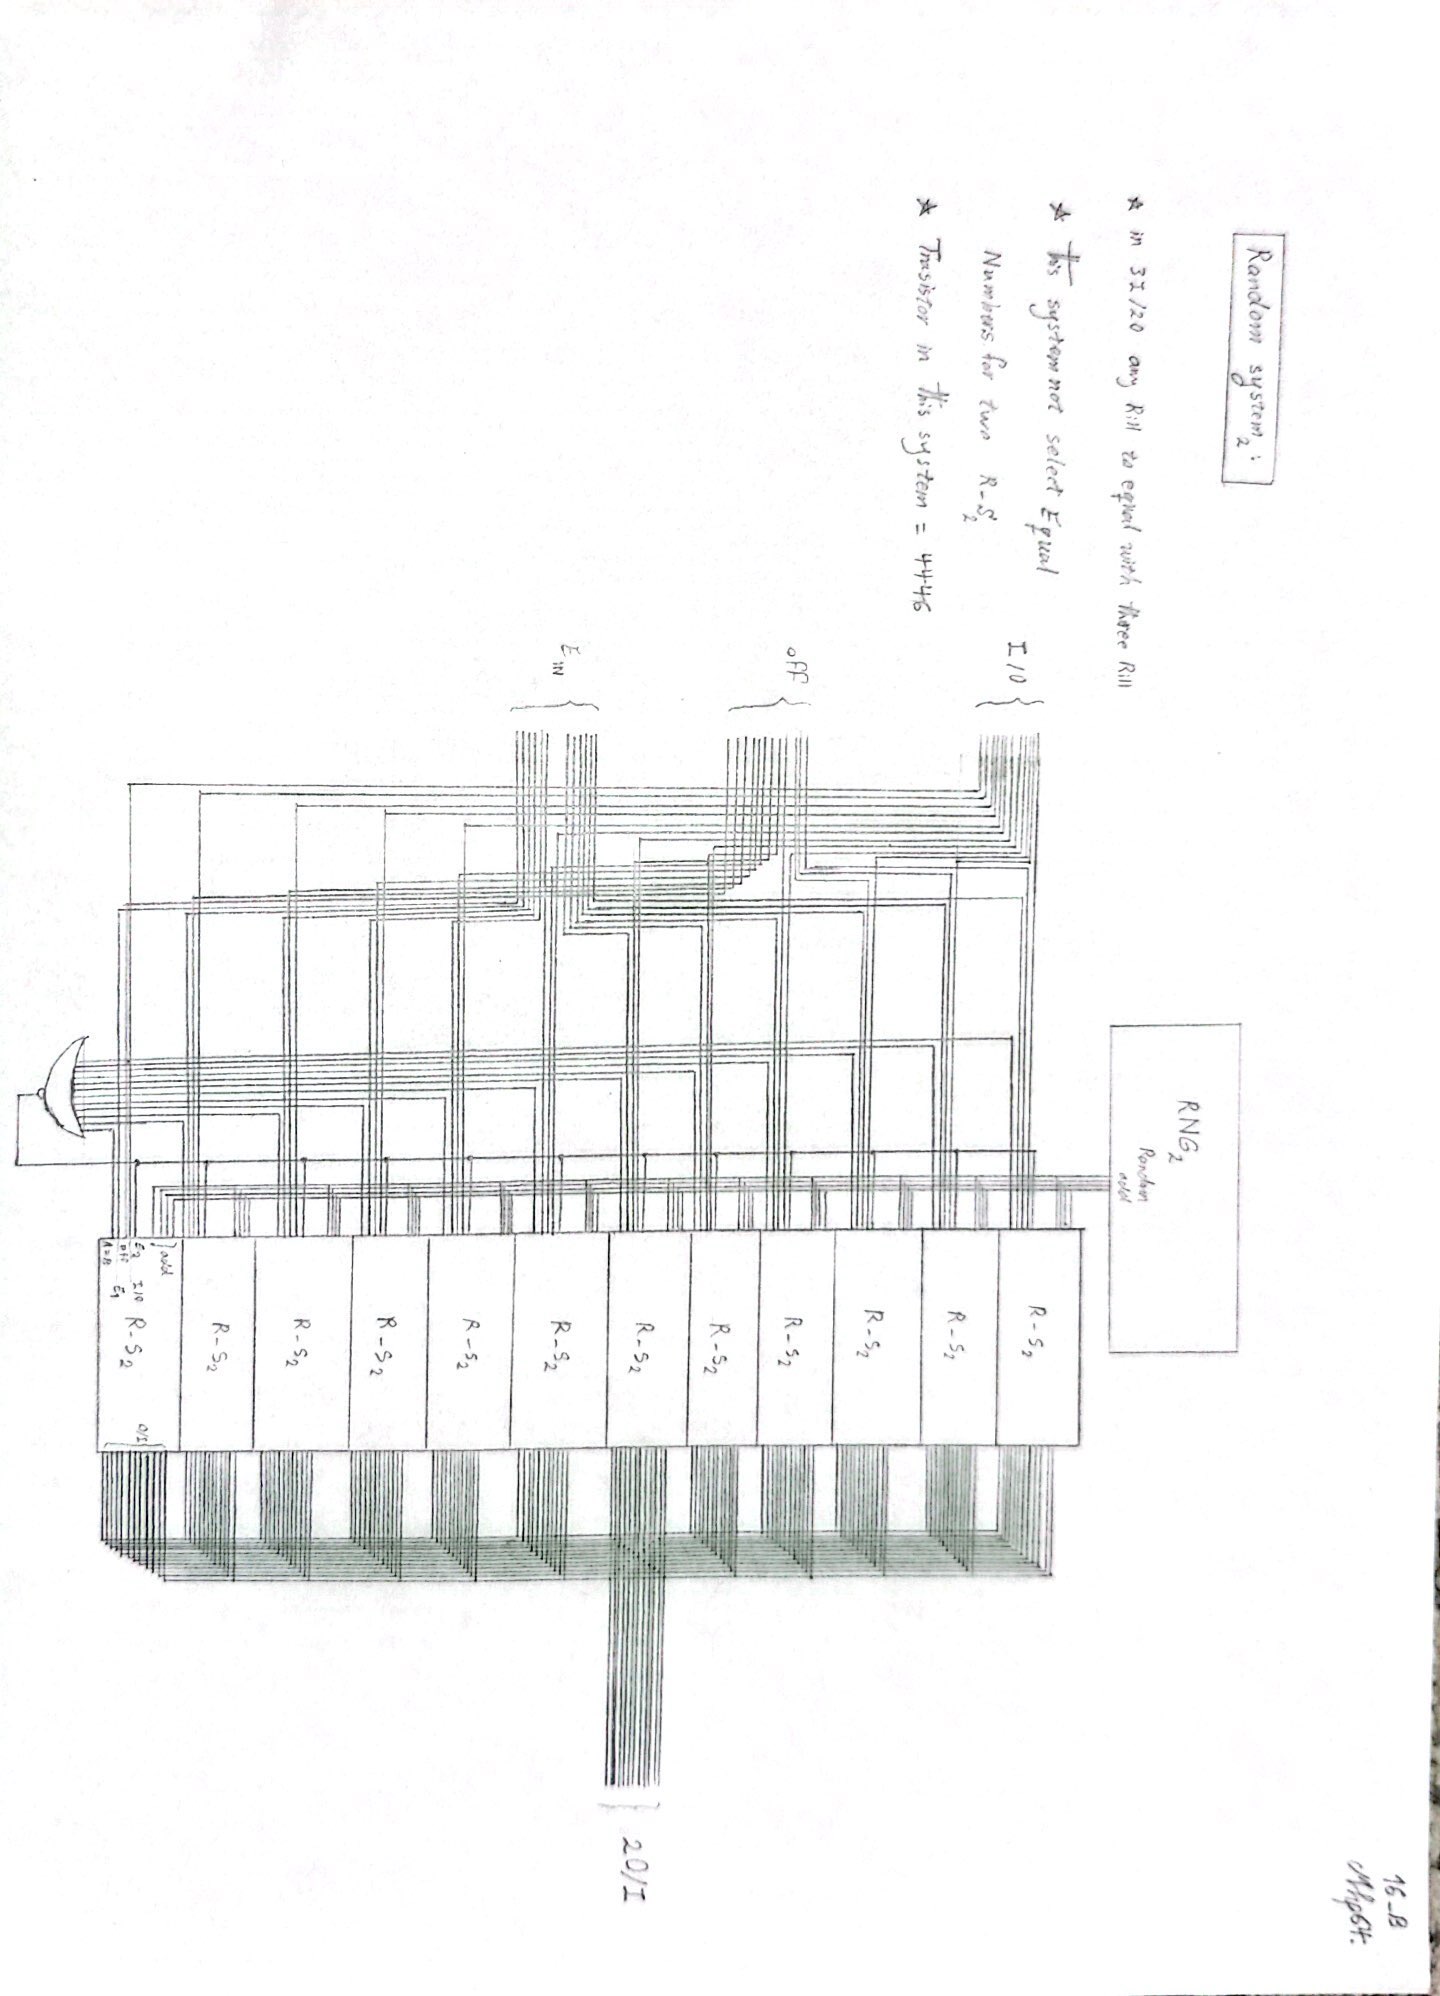 16-B
Mhp64.
Random system₂:
☆ in 3I/20 any Rill to equal with three Rill
☆ This system not select Equal
Numbers for two R-S₂
☆ Trasistor in this system = 4446
RNG₂
Random
add
I/0
off
E IN
R-S₂
R-S₂
R-S₂
R-S₂
R-S₂
R-S₂
R-S₂
R-S₂
R-S₂
R-S₂
R-S₂
add
E₂ I/0 R-S₂ 0/I
off E₁
A=B
20/I